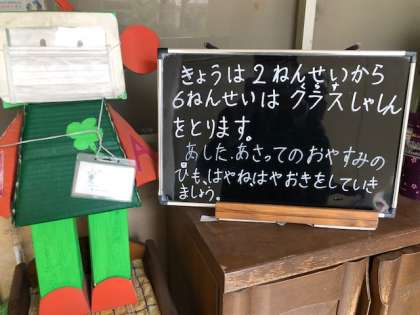 きょうは2ねんせいから
6ねんせいは クラスしゃしん
をとります。
あした、あさってのおやすみの
日も、はやね、はやおきをしていき
ましょう。